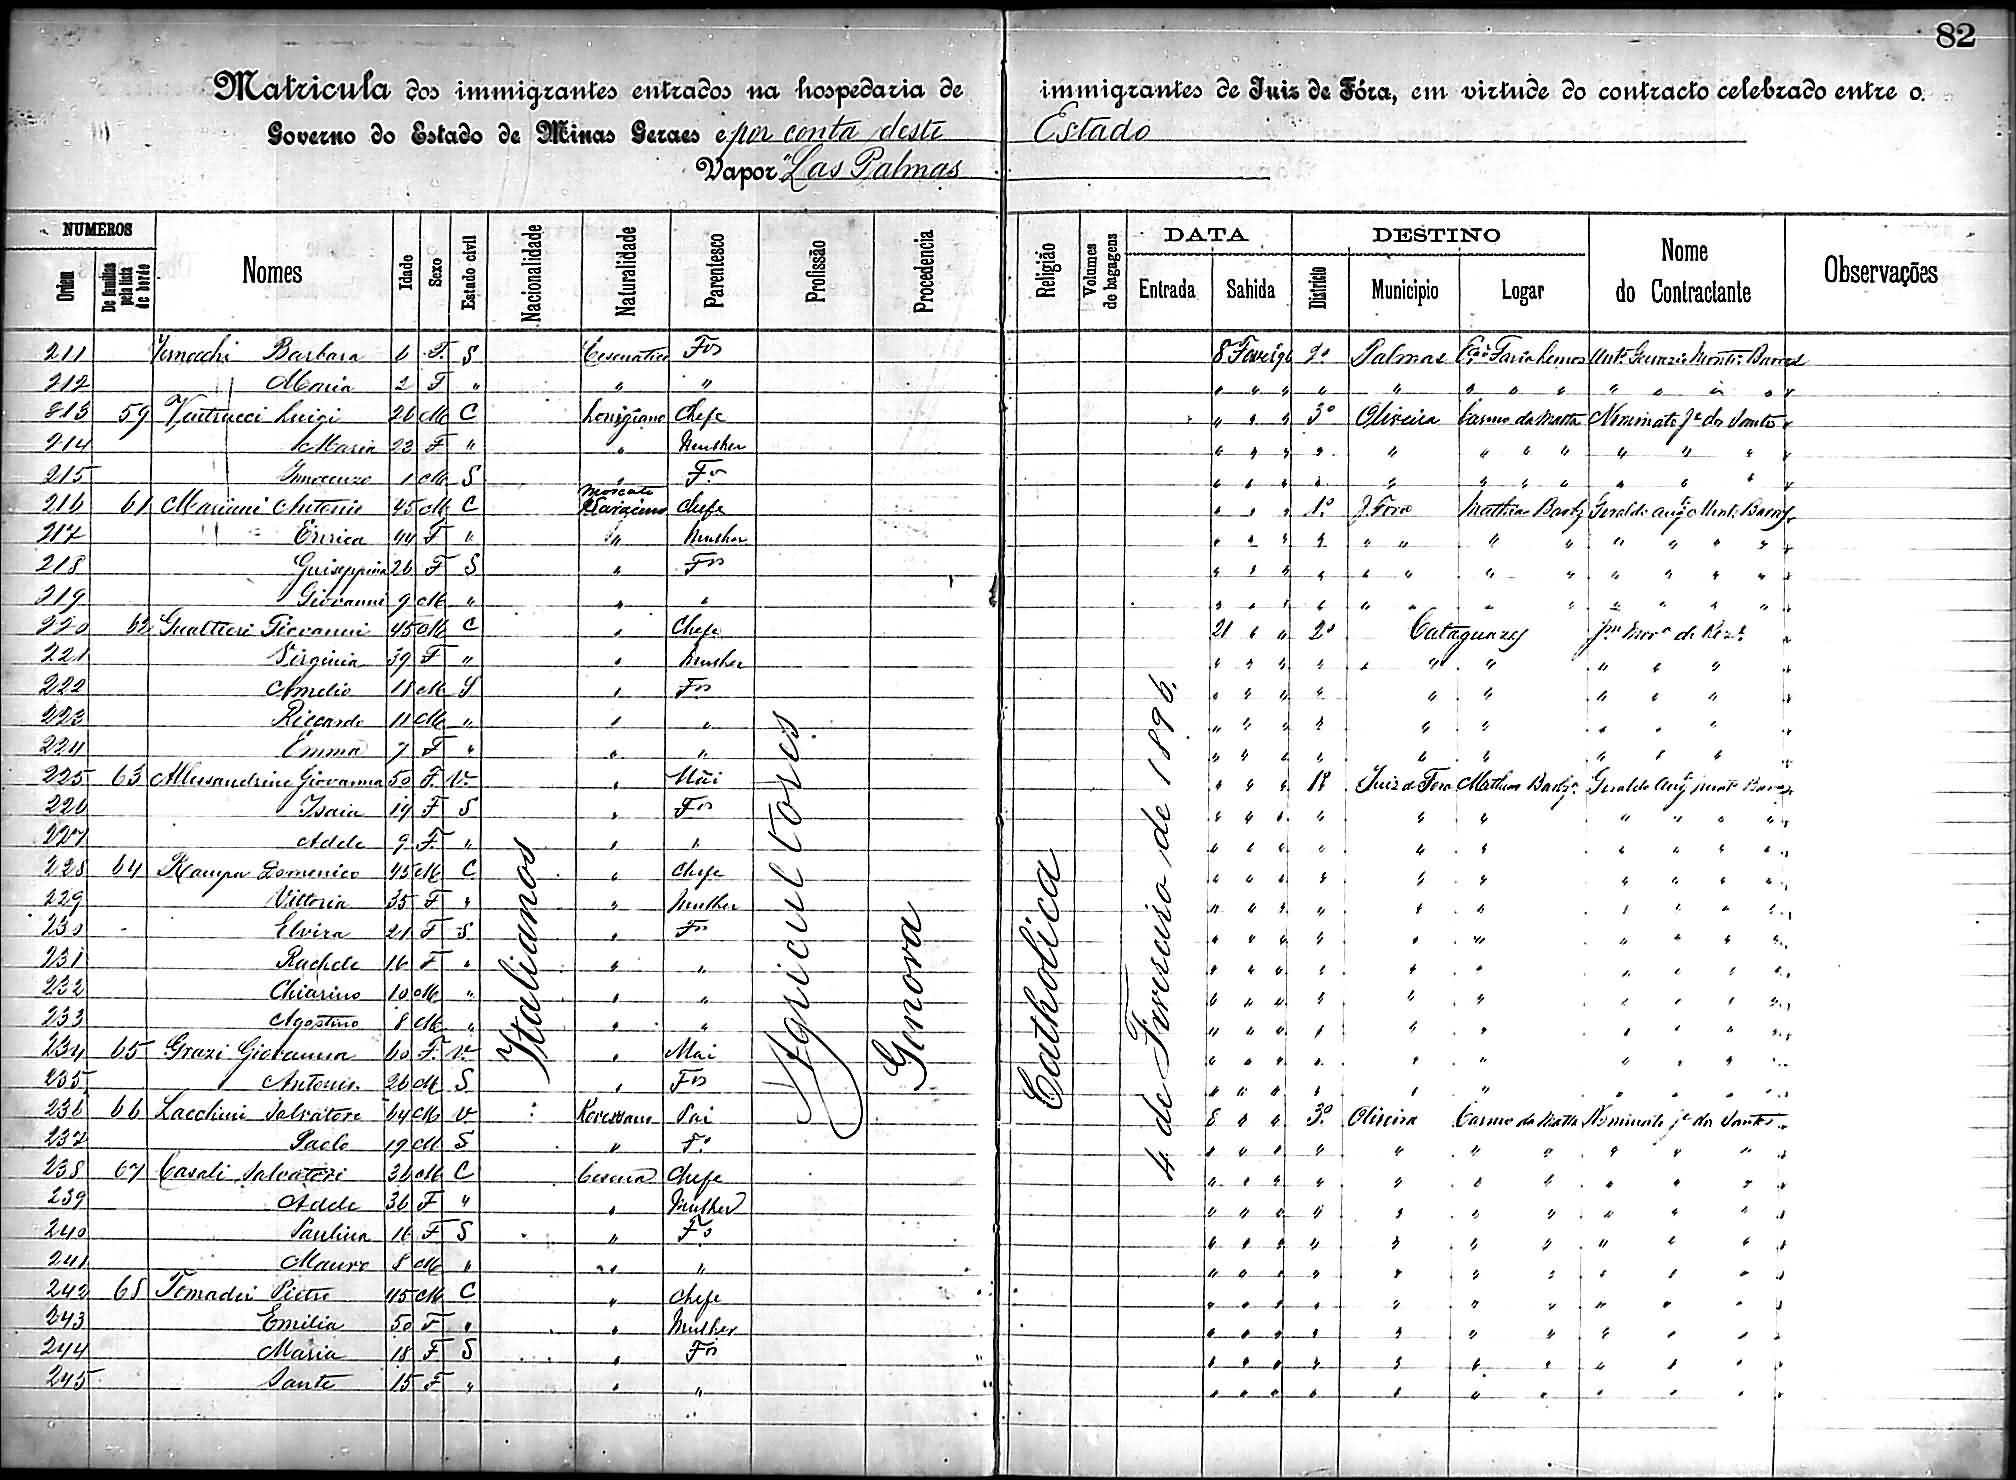 82
Matricula dos immigrantes entrados na hospedaria de immigrantes de Juiz de Fóra, em virtude do contracto celebrado entre o
Governo do Estado de Minas Geraes e por conta deste Estado
Vapor "Las Palmas
NUMEROS DATA DESTINO
Ordem De familias pela lista de bordo Nomes Idade Sexo Estado civil Nacionalidade Naturalidade Parentesco Profissão Procedencia Religião Volumes de bagagens Entrada Sahida Districto Municipio Logar Nome do Contractante Observações
Italianos
Agricultores
Genova
Catholica
4 de Fevereiro de 1896
211 Barbara 6 F. S Fos 8 2º Palmas Faria Lemos
212 Maria 2 F " " " " " " " "
213 59 Luigi 26 M C Chefe " " " 3º Oliveira Carmo da Matta Nominato Je dos Santos
214 Maria 23 F " " Mulher " " " " " " " "
215 Innocenzo 1 M S " Fo " " " " " " " "
216 61 Mariani Antonio 45 M C Chefe " " " 1º J. Fora Mathias Barbª
217 Enrica 44 F " " Mulher " " " " " " " "
218 Guiseppina 26 F S " Fos " " " " " " " "
219 Giovanni 9 M " " " " " " " " " " "
220 62 Gualtieri Giovanni 45 M C " Chefe 21 " " 2º Cataguazes
221 Virginia 39 F " " Mulher " " " " " " "
222 Amelio 18 M S " Fos " " " " " "
223 Riccardo 11 M " " " " " " " " "
224 Emma 7 F " " " " " " " " "
225 63 Allessandrini Giovanna 50 F. V. " Mãi " " " 1º Juiz de Fora Mathias Barbª
226 Isaia 14 F S " Fos " " " " " "
227 Adele 9 F " " " " " " " " "
228 64 Rampa Domenico 45 M C " Chefe " " " " " "
229 Vittoria 35 F " " Mulher " " " " " "
230 Elvira 21 F S " Fos " " " " " "
231 Rachele 16 F " " " " " " " " "
232 Chiarino 10 M " " " " " " " " "
233 Agostino 8 M " " " " " " " " "
234 65 Grazi Giovanna 60 F. V. " Mai " " " " " "
235 Antonio 26 M S " Fos " " " " " "
236 66 Lacchini Salvatore 64 M V Pai 8 " " 3º Oliveira Carmo da Matta Nominato Je dos Santos
237 Paolo 19 M S " Fo " " " " " " "
238 67 Casali Salvatore 36 M C Cesena Chefe " " " " " " "
239 Adele 36 F " " Mulher " " " " " " "
240 Paulina 16 F S " Fos " " " " " " "
241 Mauro 8 M " " " " " " " " " "
242 68 Tomadei Pietro 45 M C " Chefe " " " " " " "
243 Emilia 50 F " " Mulher " " " " " " "
244 Maria 18 F S " Fos " " " " " " "
245 Sante 15 F " " " " " " " " " "